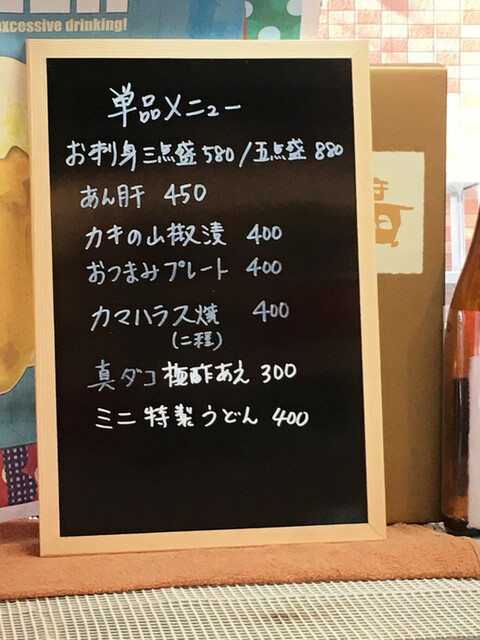 excessive drinking!
単品メニュー
お刺身三点盛580/五点盛880
あん肝 450
カキの山椒漬 400
おつまみプレート 400
カマハラス焼 400
(二種)
真ダコ 梅酢あえ 300
ミニ特製うどん 400